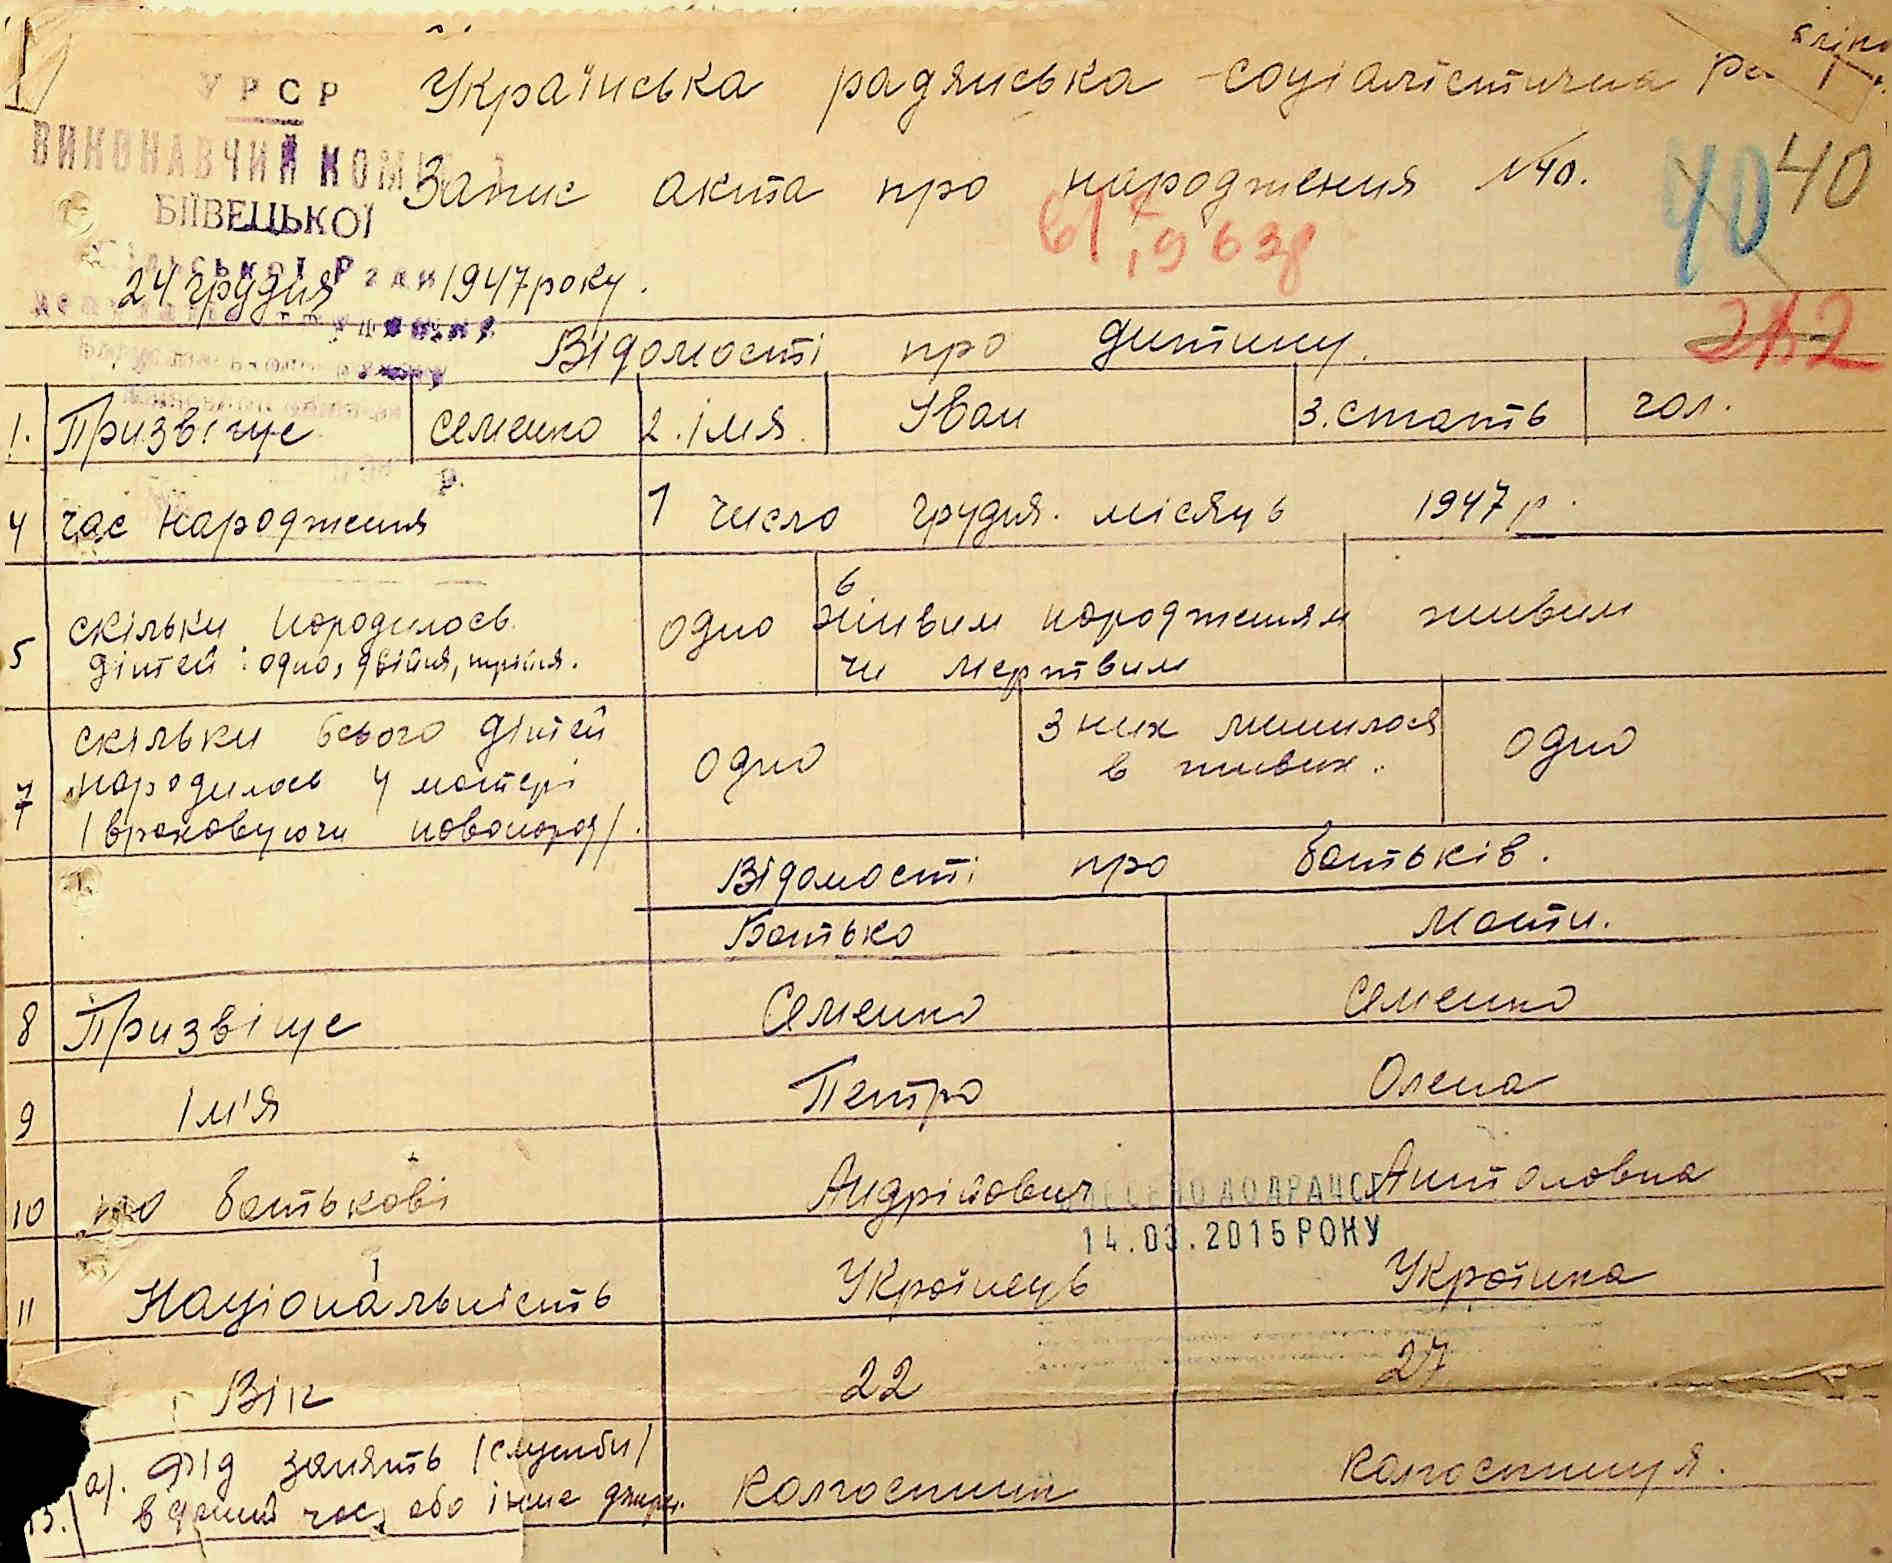 УРСР
Українська радянська соціалістична
ВИКОНАВЧИЙ
Запис акта про народження №40.
40 40
БІЇВЕЦЬКОЇ
24 грудня 1947 року.
212
Відомості про дитину.
1. Призвіще Семенко 2. імя. Іван 3. стать чол.
4 час народження 1 число грудня. місяць 1947 р.
5 скільки народилось дітей: одно, двійня, трійня. одно 6 живим народженям чи мертвим живим
7 скільки всього дітей народилось у матері /враховуючи новонород/. одно З них лишилося в живих. одно
Відомості про батьків.
Батько Мати.
8 Призвіще Семенко Семенко
9 Ім'я Петро Олена
10 по батькові Андрійович Антоновна
14.03.2015 РОКУ
11 Національність Українець Українка
Вік 22 27
13. а/. Від занять /служби/ в даний час, або інше джер. колгоспник колгоспниця.